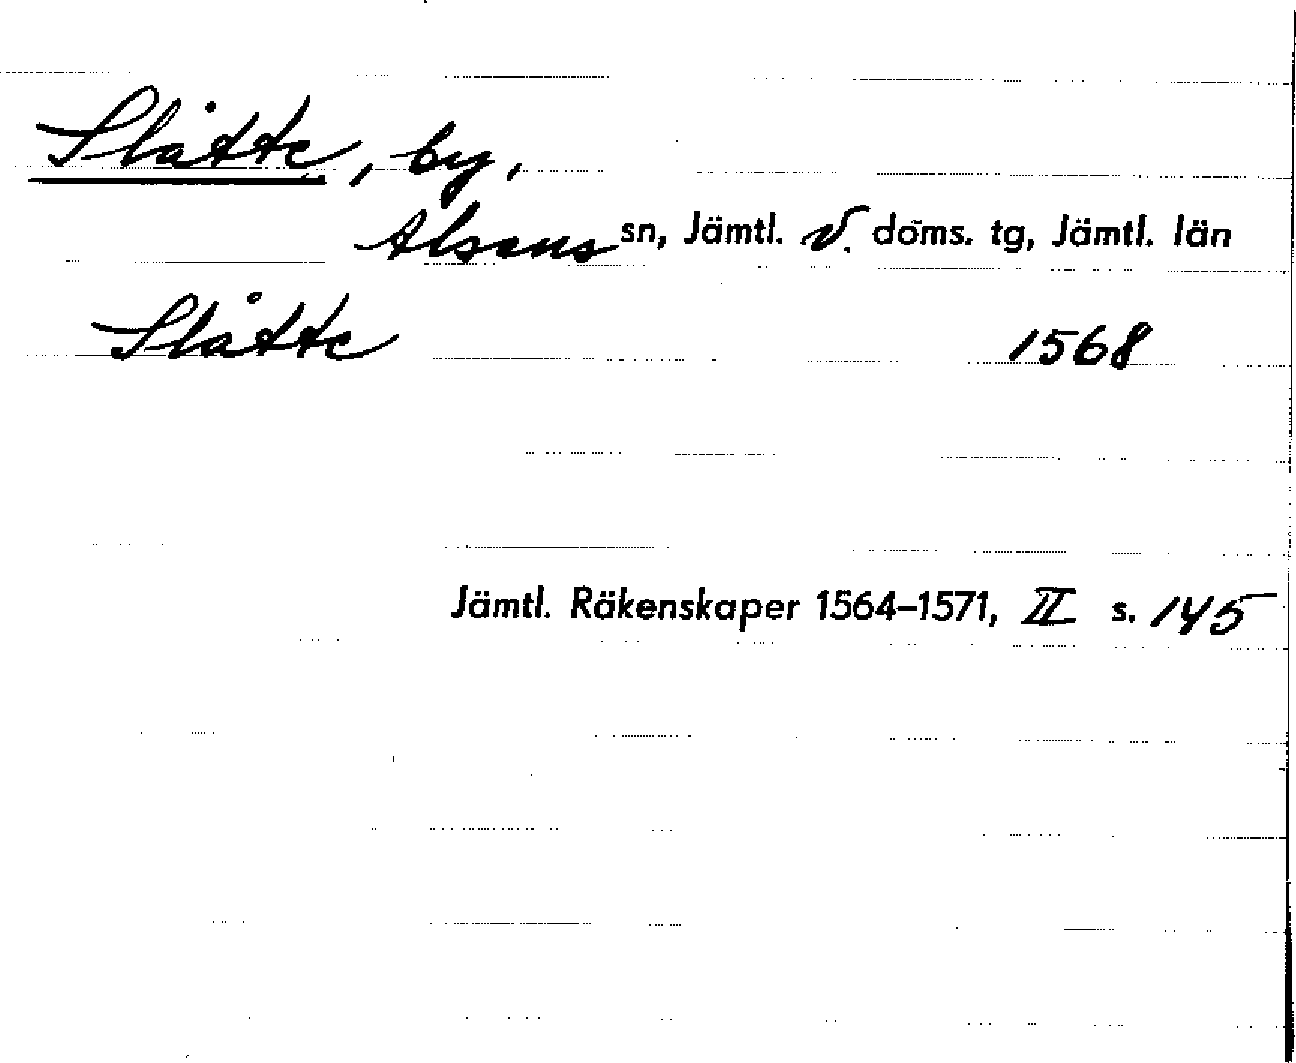 Slåtte, by,
Alsens sn, Jämtl. V. doms. tg, Jämtl. län
Slåtte 1568
Jämtl. Räkenskaper 1564–1571, II s. 145